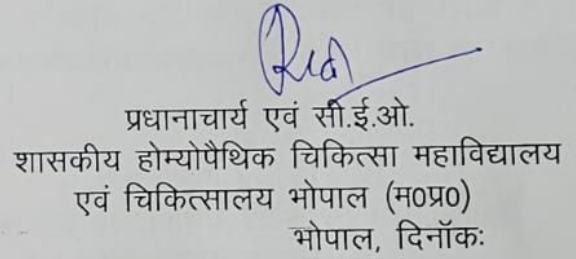 प्रधानाचार्य एवं सी.ई.ओ.
शासकीय होम्योपैथिक चिकित्सा महाविद्यालय
एवं चिकित्सालय भोपाल (म0प्र0)
भोपाल, दिनॉकः